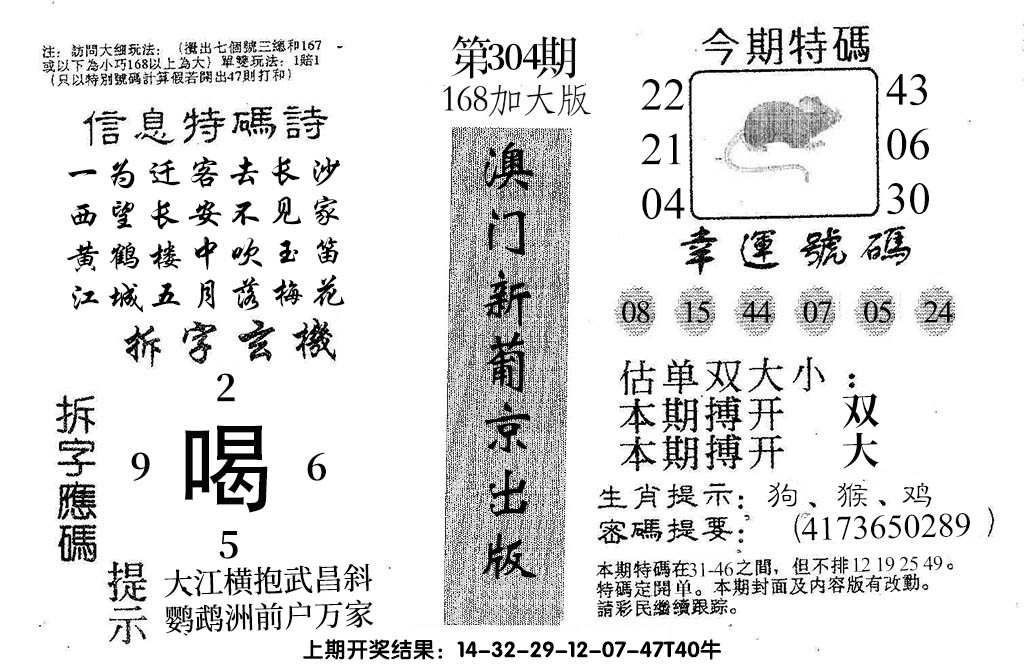 注：訪問大細玩法：（攪出七個號三總和167
或以下為小巧168以上為大）單雙玩法：1賠1
（只以特別號碼計算假若開出47則打和）
信息特碼詩
一为迁客去长沙
西望长安不见家
黄鹤楼中吹玉笛
江城五月落梅花
拆字玄機
拆字應碼
2
9 喝 6
5
提示
大江横抱武昌斜
鹦鹉洲前户万家
第304期
168加大版
澳门新葡京出版
今期特碼
22 43
21 06
04 30
幸運號碼
08 15 44 07 05 24
估单双大小：
本期搏开 双
本期搏开 大
生肖提示：狗、猴、鸡
密碼提要：（4173650289）
本期特碼在31-46之間，但不排12 19 25 49。
特碼定開单。本期封面及内容版有改動。
請彩民繼續跟踪。
上期开奖结果：14-32-29-12-07-47T40牛